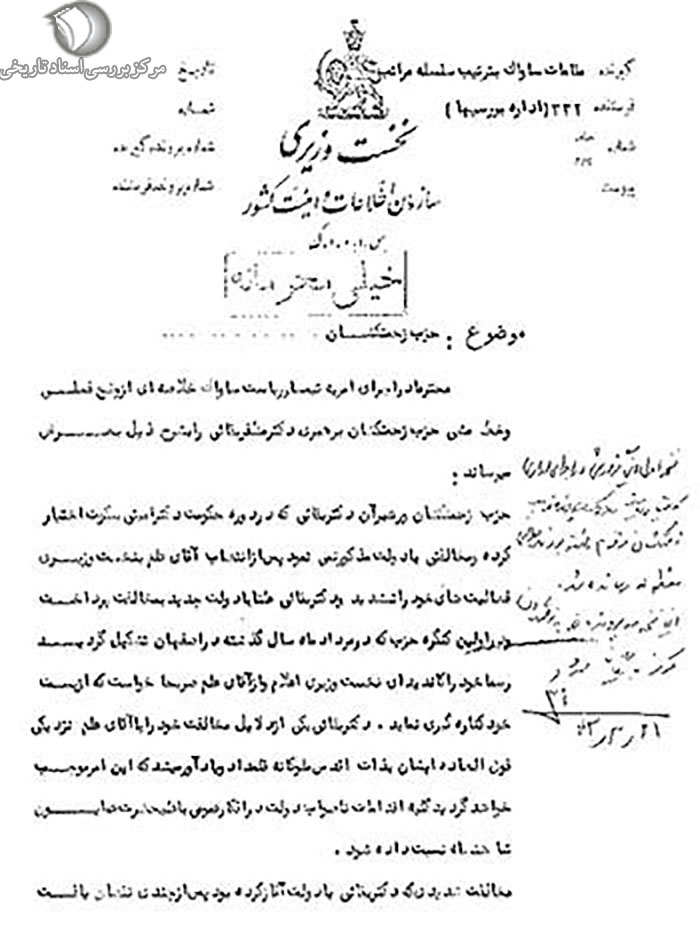 مرکز بررسی اسناد تاریخی
گیرنده مقامات ساواک بترتیب سلسله مراتب
فرستنده ۳۲۲ (اداره بررسیها)
شماره
پیوست
تاریخ
شماره
شماره پرونده گیرنده
شماره پرونده فرستنده
نخست وزیری
سازمان اطلاعات و امنیت کشور
س.ا.و.ا.ک
خیلی محرمانه
موضوع : حزب زحمتکشان
محترماً در اجرای امریه تیمسار ریاست ساواک خلاصه ای از وضع فعلی
و خط مشی حزب زحمتکشان برهبری دکتر مظفر بقائی را بشرح ذیل بعرض
میرساند :
حزب زحمتکشان و رهبر آن دکتر بقائی که در دوره حکومت دکتر امینی سکوت اختیار
کرده و مخالفتی با دولت مذکور نمی نمود پس از انتخاب آقای علم بنخست وزیری
فعالیت های خود را تشدید و دکتر بقائی علناً با دولت جدید بمخالفت پرداخت
و در اولین کنگره حزب که در مرداد ماه سال گذشته در اصفهان تشکیل گردید
رسما خود را کاندیدای نخست وزیری اعلام و از آقای علم صریحا خواست که از پست
خود کناره گیری نماید . دکتر بقائی یکی از دلایل مخالفت خود را با آقای علم نزدیکی
فوق العاده ایشان بذات اقدس ملوکانه قلمداد و یادآور میشد که این امر موجب
خواهد گردید کلیه اقدامات ناصواب دولت در افکار عمومی باعلیحضرت همایون
شاهنشاه نسبت داده شود .
مخالفت شدیدی که دکتر بقائی با دولت آغاز کرده بود پس از چندی نقصان یافت